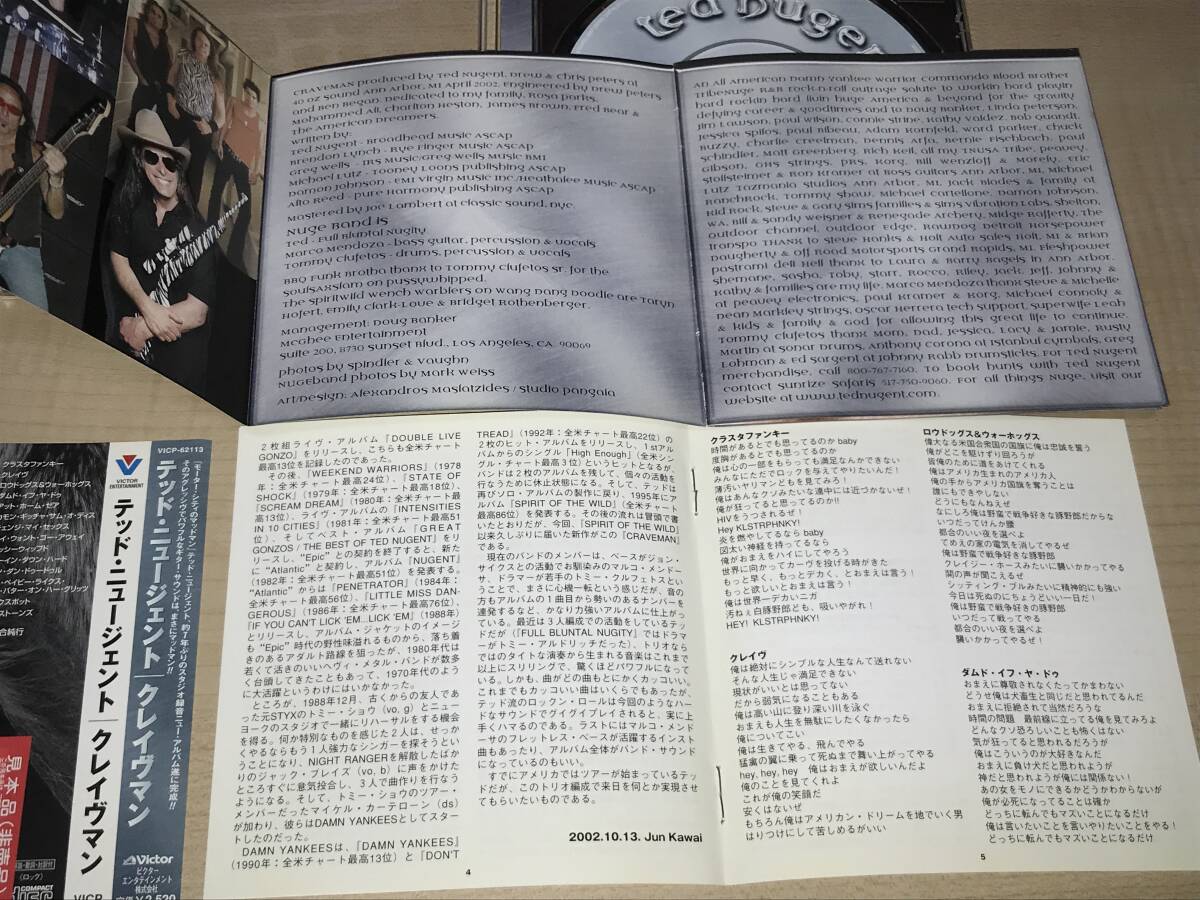 Ted Nugent
CRAVEMAN produced by Ted Nugent, Drew & Chris Peters at
40 oz Sound Ann Arbor, MI April 2002. Engineered by Drew Peters
and Ben Began. Dedicated to my family, Rosa Parks,
Mohammed Ali, Charlton Heston, James Brown, Fred Bear &
The American Dreamers.
Written by:
Ted Nugent - Broadhead Music ASCAP
Brendon Lynch - Rye Finger Music ASCAP
Greg Wells - IRS Music/Greg Wells Music BMI
Michael Lutz - Tooney Loons Publishing ASCAP
Damon Johnson - EMI Virgin Music Inc/Heathalee Music ASCAP
Alto Reed - Pure Harmony Publishing ASCAP
Mastered by Joe Lambert at Classic Sound, NYC.
Nuge Band is
Ted - Full Bluntal Nugity
Marco Mendoza - bass guitar, percussion & vocals
Tommy Clufetos - drums, percussion & vocals
BBQ Funk Brotha thank to Tommy Clufetos Sr. for the
SoulSaxSlam on Pussywhipped.
The Spiritwild Wench Warblers on Wang Dang Doodle are Taryn
Hofert, Emily Clark-Love & Bridget Rothenberger
Management: Doug Banker
McGhee Entertainment
Suite 200, 8730 Sunset Blvd., Los Angeles, CA. 90069
Photos by Spindler & Vaughn
Nugeband photos by Mark Weiss
Art/Design: Alexandros Masiatzides / Studio Pangaia
An All American Damn Yankee Warrior Commando Blood Brother
TribeNuge R&B rock-n-roll outrage salute to workin hard playin
hard rockin hard livin huge America & beyond for the gravity
defying career & goodtimes and to Doug Banker, Linda Peterson,
Jim Lawson, Paul Wilson, Connie Strine, Kathy Valdez, Bob Quandt,
Jessica Spilos, Paul Bibeau, Adam Kornfeld, Ward Parker, Chuck
Buzzy, Charlie Creelman, Dennis Arfa, Bernie Fischbach, Paul
Schindler, Matt Greenberg, Rich Keil, all my TNUSA Tribe, Peavey,
Gibson, GHS strings, PRS, Korg, Bill Wenzloff & Morely, Eric
Stollsteimer & Ron Kramer at Ross Guitars Ann Arbor, MI, Michael
Lutz Tazmania Studios Ann Arbor, MI, Jack Blades & family at
RanchRock, Tommy Shaw, Michael Cartellone, Damon Johnson,
Kid Rock, Steve & Gary Sims families & Sims Vibration Labs, Shelton,
WA, Bill & Sandy Weisner & Renegade Archery, Midge Rafferty, The
Outdoor Channel, Outdoor Edge. RawDog Detroit Horsepower
Transpo thank to Steve Honks & Holt Auto Sales Holt, MI & Brian
Daugherty & Off Road Motorsports Grand Rapids, MI. Fleshpower
Pastrami Deli Hell thank to Laura & Barry Bagels in Ann Arbor.
Shemane, Sasha, Toby, Starr, Rocco, Riley, Jack, Jeff, Johnny &
Kathy & families are my life. Marco Mendoza thank Steve & Michelle
at Peavey Electronics, Paul Kramer & Korg, Michael Connoly &
Dean Markley strings, Oscar Herrera tech support, Superwife Leah
& kids & family & God for allowing this great life to continue.
Tommy Clufetos thank Mom, Dad, Jessica, Lacy & Jamie, Rusty
Martin at Sonar Drums, Anthony Corona at Istanbul Cymbals, Greg
Lohman & Ed Sargent at Johnny Rabb Drumsticks. For Ted Nugent
merchandise, call 800-767-7160. To book hunts with Ted Nugent
contact Sunrize Safaris 517-750-9060. For all things Nuge, visit our
website at www.tednugent.com.
2枚組ライヴ・アルバム『DOUBLE LIVE
GONZO』をリリースし、こちらも全米チャート
最高13位を記録したのであった。
その後、『WEEKEND WARRIORS』(1978
年：全米チャート最高24位)、『STATE OF
SHOCK』(1979年：全米チャート最高18位)、
『SCREAM DREAM』(1980年：全米チャート最
高13位)、ライヴ・アルバムの『INTENSITIES
IN 10 CITIES』(1981年：全米チャート最高51
位)、そしてベスト・アルバム『GREAT
GONZOS / THE BEST OF TED NUGENT』をリ
リースし、"Epic" との契約を終了すると、新た
に "Atlantic" と契約し、アルバム『NUGENT』
(1982年：全米チャート最高51位)を発表する。
"Atlantic" からは『PENETRATOR』(1984年：
全米チャート最高56位)、『LITTLE MISS DAN-
GEROUS』(1986年：全米チャート最高76位)、
『IF YOU CAN'T LICK 'EM...LICK 'EM』(1988年)
とリリースし、アルバム・ジャケットのイメージ
も "Epic" 時代の野性味溢れるものから、落ち着
きのあるアダルト路線を狙ったが、1980年代は
若くて活きのいいヘヴィ・メタル・バンドが数多
く台頭してきたこともあって、1970年代のよう
に大活躍というわけにはいかなかった。
ところが、1988年12月、古くからの友人であ
った元STYXのトミー・ショウ(vo, g)とニュー
ヨークのスタジオで一緒にリハーサルをする機会
を得る。何か特別なものを感じた2人は、せっか
くやるならもう1人強力なシンガーを探そうとい
うことになり、NIGHT RANGERを解散したばか
りのジャック・ブレイズ(vo, b)に声をかけた
ところすぐに意気投合し、3人で曲作りを行なう
ようになる。そして、トミー・ショウのツアー・
メンバーだったマイケル・カーテローン(ds)
が加わり、彼らはDAMN YANKEESとしてスター
トしたのだった。
DAMN YANKEESは、『DAMN YANKEES』
(1990年：全米チャート最高13位)と『DON'T
TREAD』(1992年：全米チャート最高22位)の
2枚のヒット・アルバムをリリースし、1stアル
バムからのシングル「High Enough」(全米シン
グル・チャート最高3位)というヒットとなるが、
バンドは2枚のアルバムを残して、個々の活動を
行なうために休止状態になる。そして、テッドは
再びソロ・アルバムの製作に戻り、1995年にア
ルバム『SPIRIT OF THE WILD』(全米チャート
最高86位)を発表する。その後の流れは冒頭で書
いたとおりだが、今回、『SPIRIT OF THE WILD』
以来久しぶりに届いた新作がこの『CRAVEMAN』
である。
現在のバンドのメンバーは、ベースがジョン・
サイクスとの活動でお馴染みのマルコ・メンドー
サ、ドラマーが若手のトミー・クルフェトスとい
うことで、まさに心機一転という感じだが、音の
方もアルバムの1曲目から勢いのあるナンバーを
連発するなど、かなり力強いアルバムに仕上がっ
ている。最近は3人編成での活動をしているテッ
ドだが(『FULL BLUNTAL NUGITY』ではドラマ
ーがトミー・アルドリッチだった)、トリオなら
ではのタイトな演奏から生まれる音楽はこれまで
以上にスリリングで、驚くほどパワフルになって
いる。しかも、曲がどの曲もとにかくカッコいい。
これまでもカッコいい曲はいくらでもあったが、
テッド流のロックン・ロールは今回のようなハー
ドなサウンドでグイグイプレイされると、実に上
手くハマるのである。ラストにはマルコ・メンド
ーサのフレットレス・ベースが活躍するインスト
曲もあったり、アルバム全体がバンド・サウンド
になっているのもいい。
すでにアメリカではツアーが始まっているテッ
ドだが、このトリオ編成で来日を何とか実現させ
てもらいたいものである。
2002.10.13. Jun Kawai
4
クラスタファンキー
時間があるとでも思ってるのか baby
度胸があるとでも思ってるのか
俺は心の一部をもらっても満足なんかできない
みんなにただでロックを与えてやりたいんだ！
薄汚いヤリマンどもを見てみろ！
俺はあんなクソみたいな連中には近づかないぜ！
俺が狂ってると思ってるのか!!
HIVをうつされるぜ！
Hey KLSTRPHNKY!
炎を燃やしてるなら baby
図太い神経を持ってるなら
俺がおまえをハイにしてやろう
世界に向かってカーヴを投げる時がきた
もっと早く、もっとデカく、とおまえは言う！
もっと欲しいとおまえは言う！
俺は世界一デカいニガ
汚ねぇ白豚野郎ども、吸いやがれ！
HEY! KLSTRPHNKY!
クレイヴ
俺は絶対にシンプルな人生なんて送れない
そんな人生じゃ満足できない
現状がいいとは思ってない
だから弱気になることもある
俺は高い山に登り深い川を泳ぐ
おまえも人生を無駄にしたくなかったら
俺についてこい
俺は生きてやる、飛んでやる
猛禽の翼に乗って死ぬまで舞い上がってやる
hey, hey, hey　俺はおまえが欲しいんだよ
俺のことを見てくれよ
これが俺の笑顔だ
安くはないぜ
もちろん俺はアメリカン・ドリームを地でいく男
はりつけにして苦しめるがいい
ロウドッグス&ウォーホッグス
偉大なる米国合衆国の国旗に俺は忠誠を誓う
俺がどこを駆けずり回ろうが
皆俺のために道をあけてくれる
俺はアメリカ生まれのアメリカ人
俺の手からアメリカ国旗を奪うことは
誰にもできやしない
どうにもなんねえぜ
なにしろ俺は野蛮で戦争好きな豚野郎だからな
いつだってけんか腰
都合のいい夜を選べよ
てめえの家の電気を消してやるぜ
俺は野蛮で戦争好きな豚野郎
クレイジー・ホースみたいに襲いかかってやる
闘の声が聞こえるぜ
シッティング・ブルみたいに精神的にも強い
今日は死ぬのにちょうどいい一日だ！
俺は野蛮で戦争好きの豚野郎
いつだって戦ってやる
都合のいい夜を選べよ
襲いかかってやるぜ！
ダムド・イフ・ヤ・ドゥ
おまえに尊敬されなくたってかまわない
どうせ俺は犬畜生と同じだと思われてるんだ
おまえに拒絶されて当然だろうな
時間の問題　最前線に立ってる俺を見てみろよ
どんなクソ恐ろしいことも怖くはない
気が狂ってると思われるだろうが
俺はこういうのが大好きなんだ
おまえに負け犬だと思われようが
神だと思われようが俺には関係ない！
あの女をモノにできるかどうかわからないが
俺が必死になってることは確か
どっちに転んでもマズいことになるだけ
俺は言いたいことを言いやりたいことをやる！
どっちに転んでもマズいことになるだけ
5
VICTOR
ENTERTAINMENT
VICP-62113
「モーター・シティのマッドマン」テッド・ニュージェント、約7年ぶりのスタジオ録音ニュー・アルバム遂に完成!!
そのアグレッシヴでパワフルなギター・サウンドは、まさにマッドマン!!
テッド・ニュージェント│クレイヴマン
Victor
ビクター
エンタテインメント
株式会社
定価￥2,520
テッド・ニュージェント│クレイヴマン
VICP
クラスタファンキー
クレイヴ
ロウドッグス&ウォーホッグス
ダムド・イフ・ヤ・ドゥ
見本品(非売品)
COMPACT
(ロック)